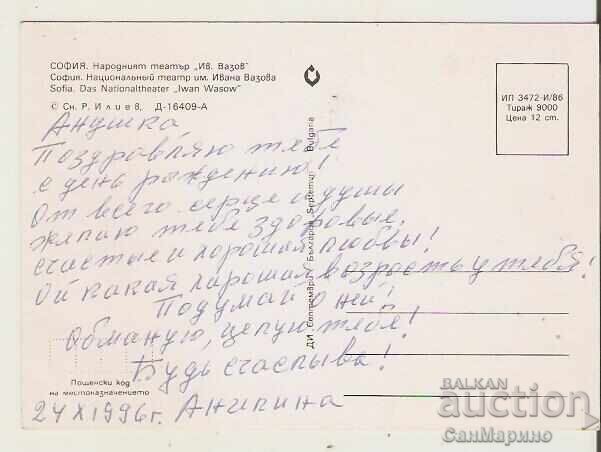 СОФИЯ. Народният театър „Ив. Вазов“
София. Национальный театр им. Ивана Вазова
Sofia. Das Nationaltheater „Iwan Wasow“
© Сн. Р. Илиев, Д-16409-А
ИП 3472-И/86
Тираж 9000
Цена 12 ст.
ДИ „Септември“ България Septemvri Bulgaria
Анушка,
Поздравляю тебе
с день рождению!
От всего серце и душы
желаю тебе здоровые,
счастье и хорошая любвы!
Ой какая харошая возрость у тебя!
Подумай о ней!
Обманую, целую тебе!
Будь счастьıва!
24 X 1996г. Анипина
Пощенски код
на местоназначението
BALKAN
auction
СанМарино